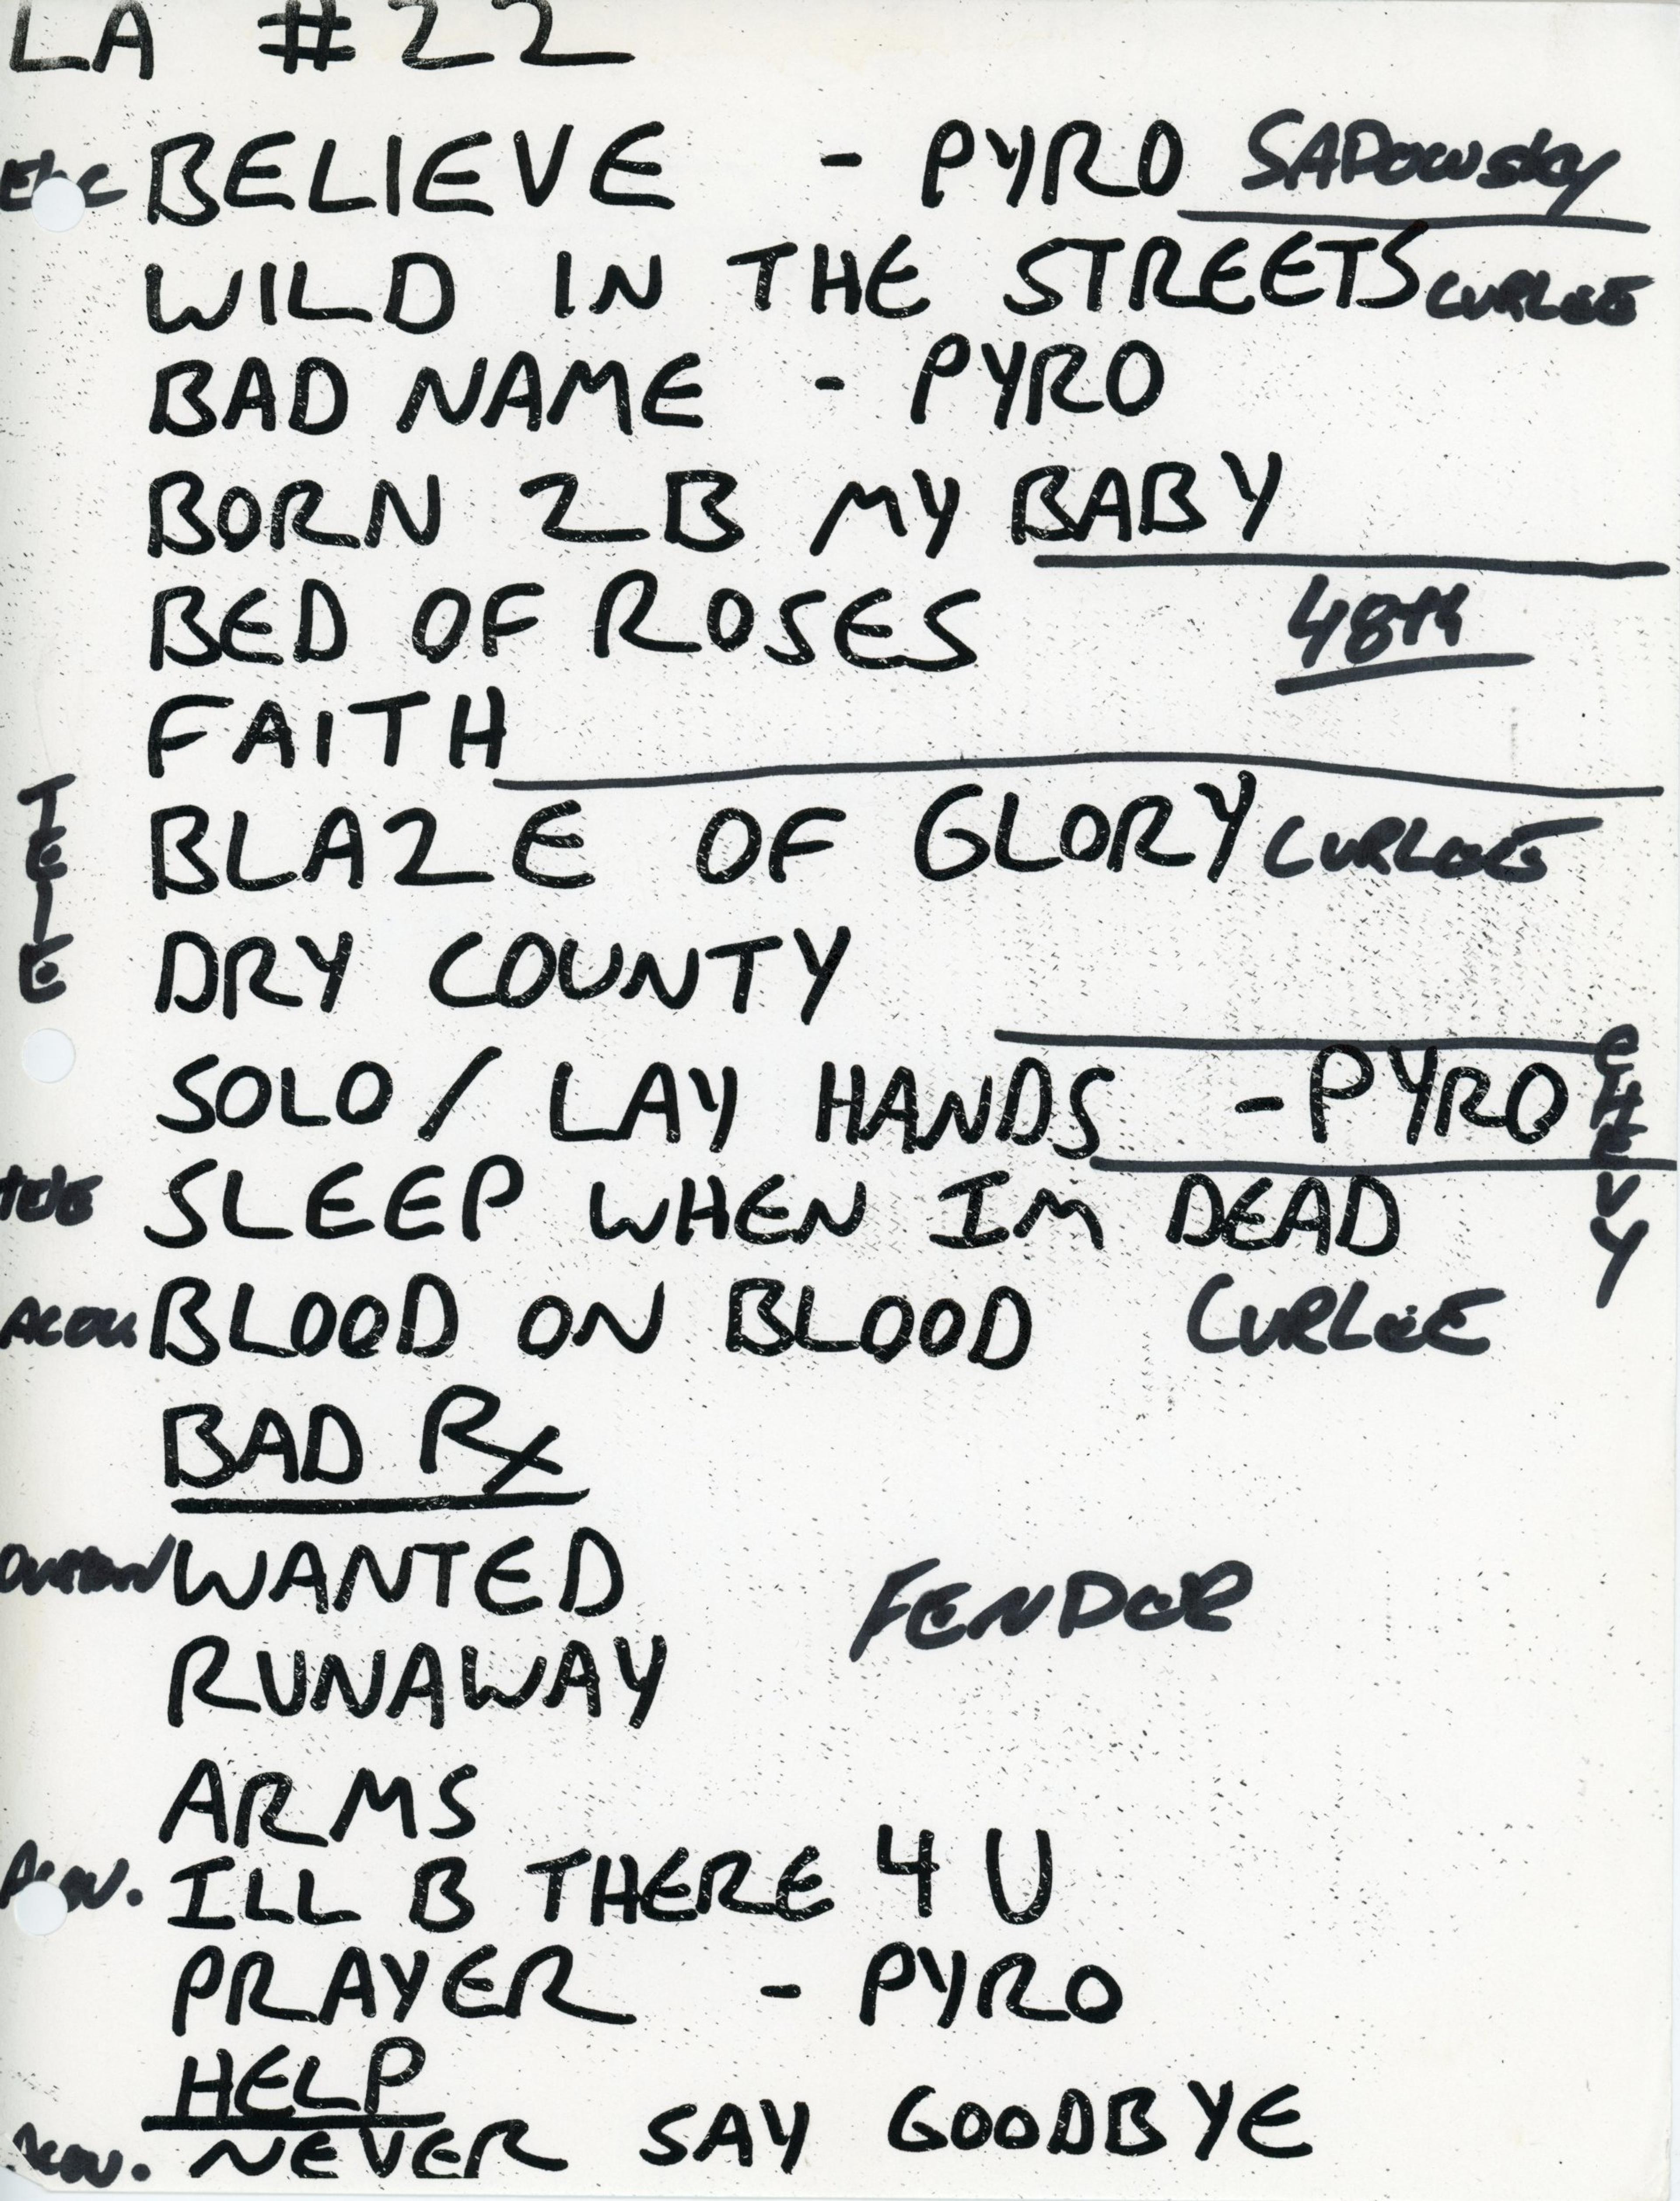 LA #22
ELEC BELIEVE - PYRO SADOWSKY
WILD IN THE STREETS CURLEE
BAD NAME - PYRO
BORN 2 B MY BABY
BED OF ROSES 48TH
FAITH
TELE
BLAZE OF GLORY CURLEE
DRY COUNTY
SOLO / LAY HANDS - PYRO
CHEVY
SLEEP WHEN IM DEAD
ACOU. BLOOD ON BLOOD CURLEE
BAD Rx
WANTED FENDER
RUNAWAY
ARMS
ACOU. ILL B THERE 4 U
PRAYER - PYRO
HELP
ACOU. NEVER SAY GOODBYE